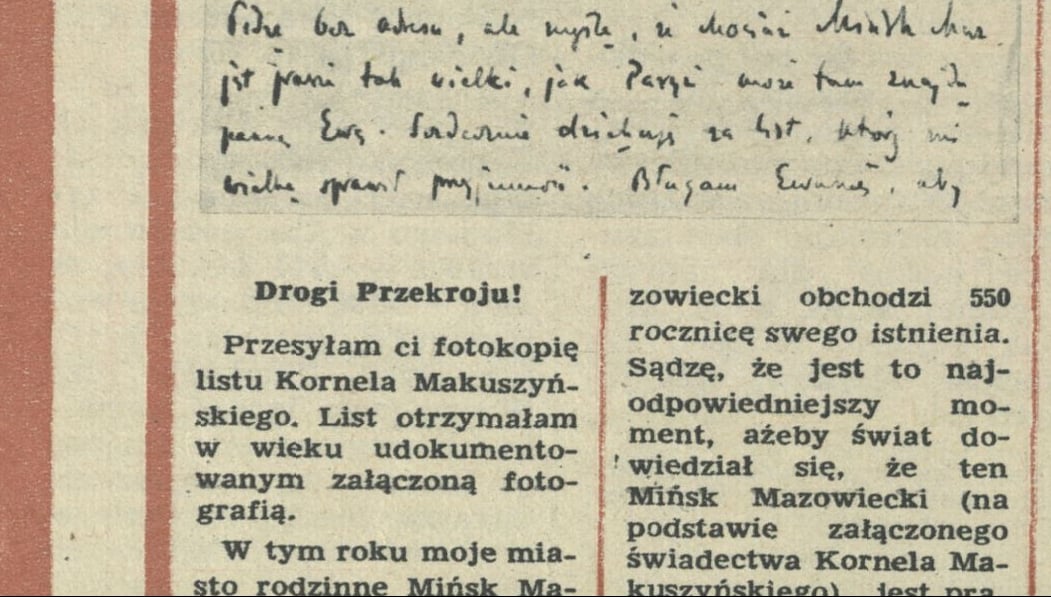 Piszę bez adresu, ale myślę, że chociaż Mińsk Maz.
jest prawie tak wielki, jak Paryż może tam znajdą
pannę Ewę. Serdecznie dziękuję za list, który mi
wielką sprawił przyjemność. Błagam Ewunię, aby
Drogi Przekroju!
Przesyłam ci fotokopię
listu Kornela Makuszyń-
skiego. List otrzymałam
w wieku udokumento-
wanym załączoną foto-
grafią.
W tym roku moje mia-
sto rodzinne Mińsk Ma-
zowiecki obchodzi 550
rocznicę swego istnienia.
Sądzę, że jest to naj-
odpowiedniejszy mo-
ment, ażeby świat do-
wiedział się, że ten
Mińsk Mazowiecki (na
podstawie załączonego
świadectwa Kornela Ma-
kuszyńskiego) jest pra-